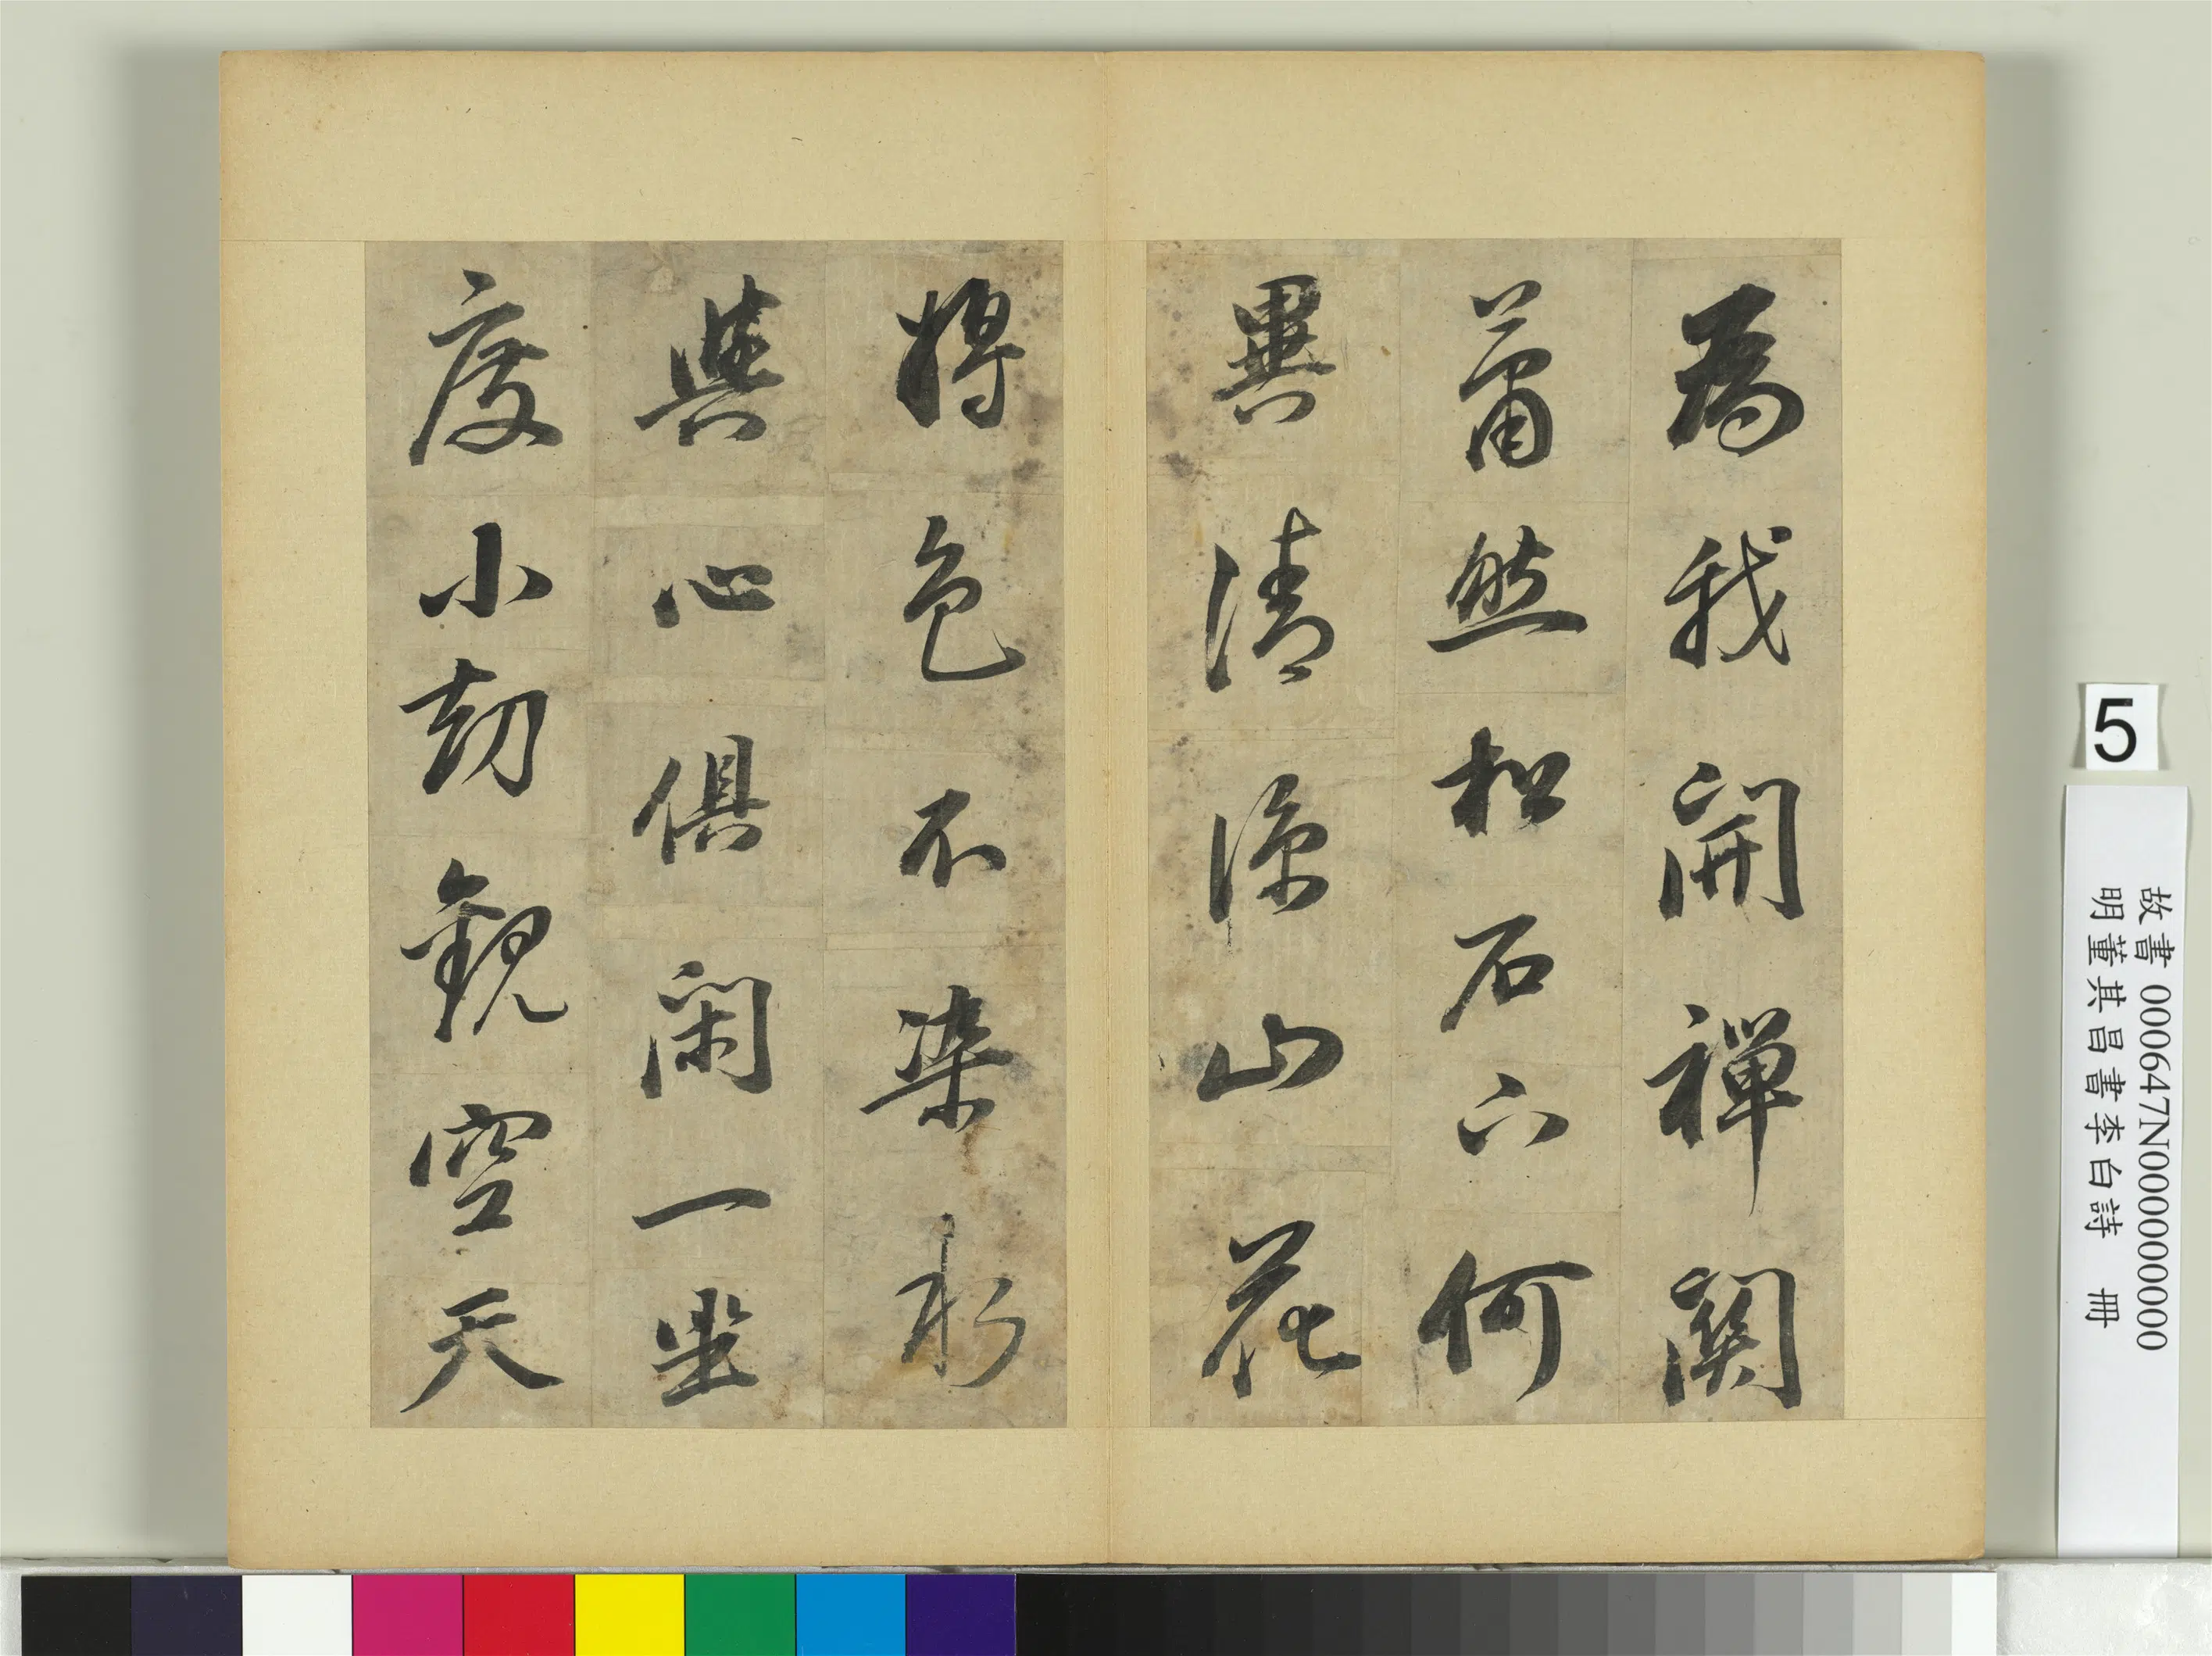 為我開禪關
蕭然松石下何
異清涼山花
將色不染水
與心俱閑一坐
度小劫觀空天
5
故書 000647N000000000
明董其昌書李白詩 冊